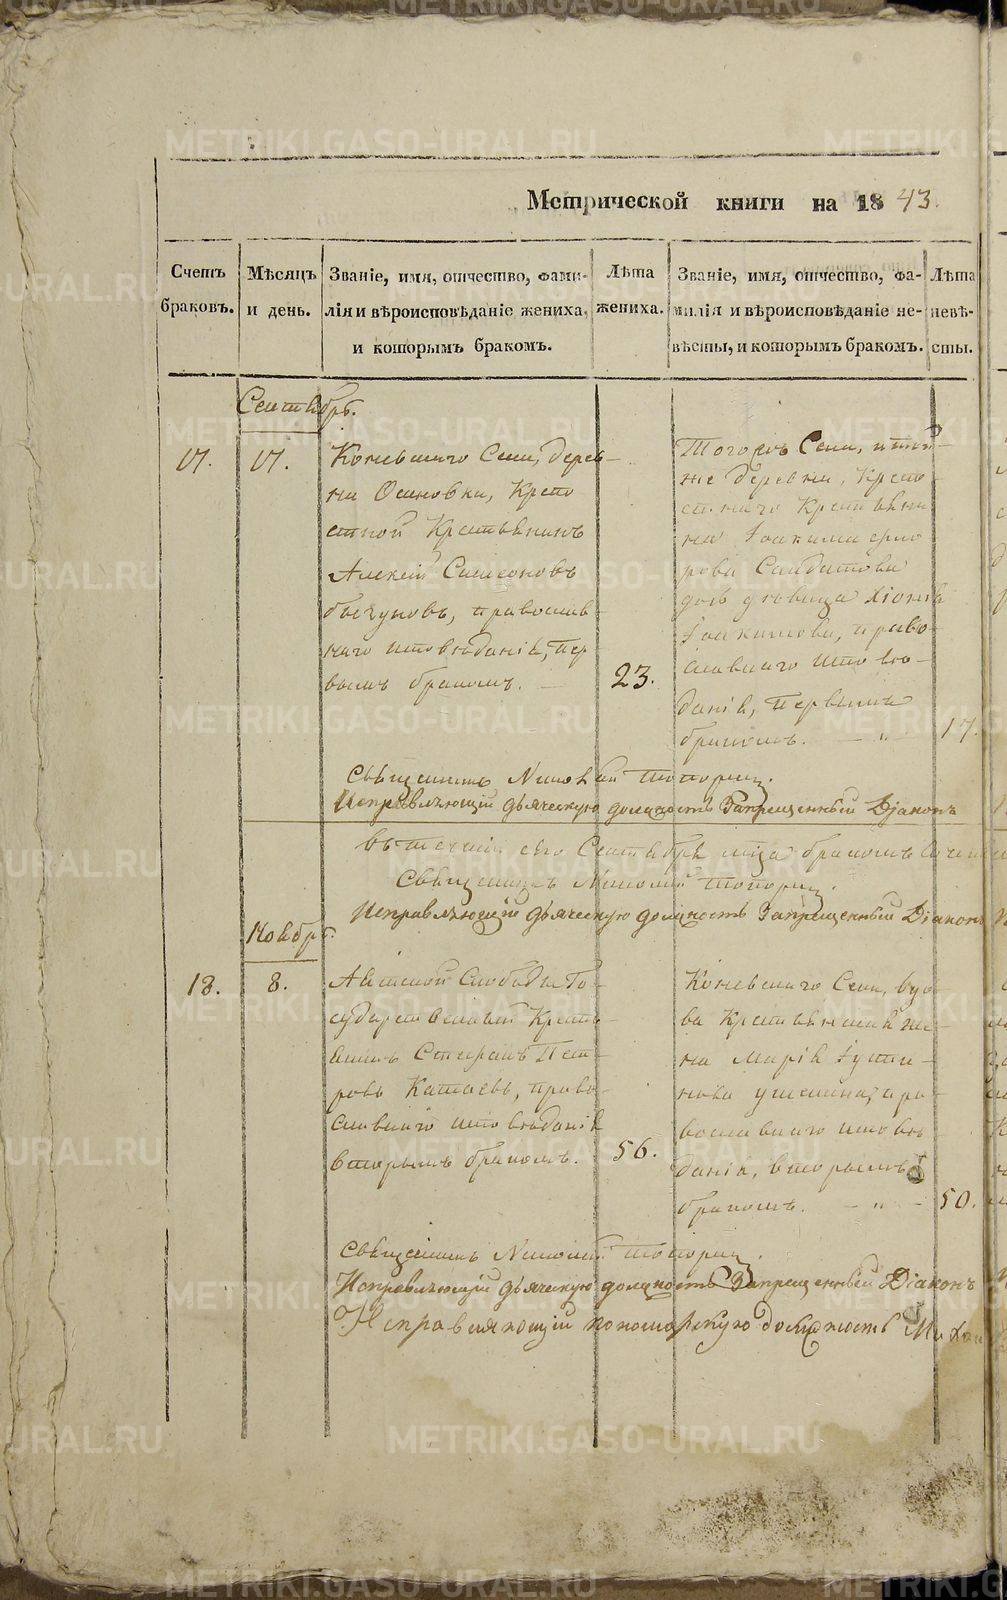 Метрической книги на 1843.
Счетъ браковъ.
Мѣсяцъ и день.
Званіе, имя, отчество, фами-
лія и вѣроисповѣданіе жениха,
и которымъ бракомъ.
Лѣта
жениха.
Званіе, имя, отчество, фа-
милія и вѣроисповѣданіе не-
вѣсты, и которымъ бракомъ.
Лѣта
невѣ-
сты.
Сентябрь.
17. 17.
Коневскаго Села, дерев-
ни Осиновки, Крепо
стной Крестьянинъ
Алексѣй Симеоновъ
православ-
наго исповѣданія, пер
вымъ бракомъ. —
23.
Тогожъ Села, и той
же деревни, Крепо
стнаго Крестьяни
на Іоакима
Солдатова
дочь дѣвица Хіонія
Іоакимова, право
славнаго исповѣ-
данія, первымъ
бракомъ. — „
17.
Священникъ Николай Топорищ.
Исправляющій дьяческую должность Запрещенный Діаконъ
въ теченіи сего Сентября мца бракомъ
Священникъ Николай Топорищ.
Исправляющій дьяческую должность Запрещенный Діаконъ
Ноябрь.
18. 8.
Аятской Слободы Го-
сударственный Кресть
янинъ Стефанъ Пет-
ровъ Катаевъ, право
славнаго исповѣданія
вторымъ бракомъ.
56.
Коневскаго Села, вдо-
ва Крестьянская же-
на Марія Іусти-
нова пра-
вославнаго исповѣ
данія, вторымъ
бракомъ. — „ —
50.
Священникъ Николай Топорищ.
Исправляющій дьяческую должность Запрещенный Діаконъ
Исправляющій пономарскую должность
METRIKI.GASO-URAL.RU